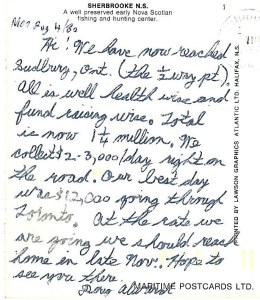 SHERBROOKE N.S.
A well preserved early Nova Scotian
fishing and hunting center.
Mon Aug 4/80
Hi! We have now reached
Sudbury, Ont. (the ½ way pt).
All is well health wise and
fund raising wise. Total
is now 1¼ million. We
collect $2-3,000/day right on
the road. Our best day
was $12,000 going through
Toronto. At the rate we
are going we should reach
home in late Nov. Hope to
see you there.
Doug
MARITIME POSTCARDS LTD.
PRINTED BY LAWSON GRAPHICS ATLANTIC LTD. HALIFAX, N.S.